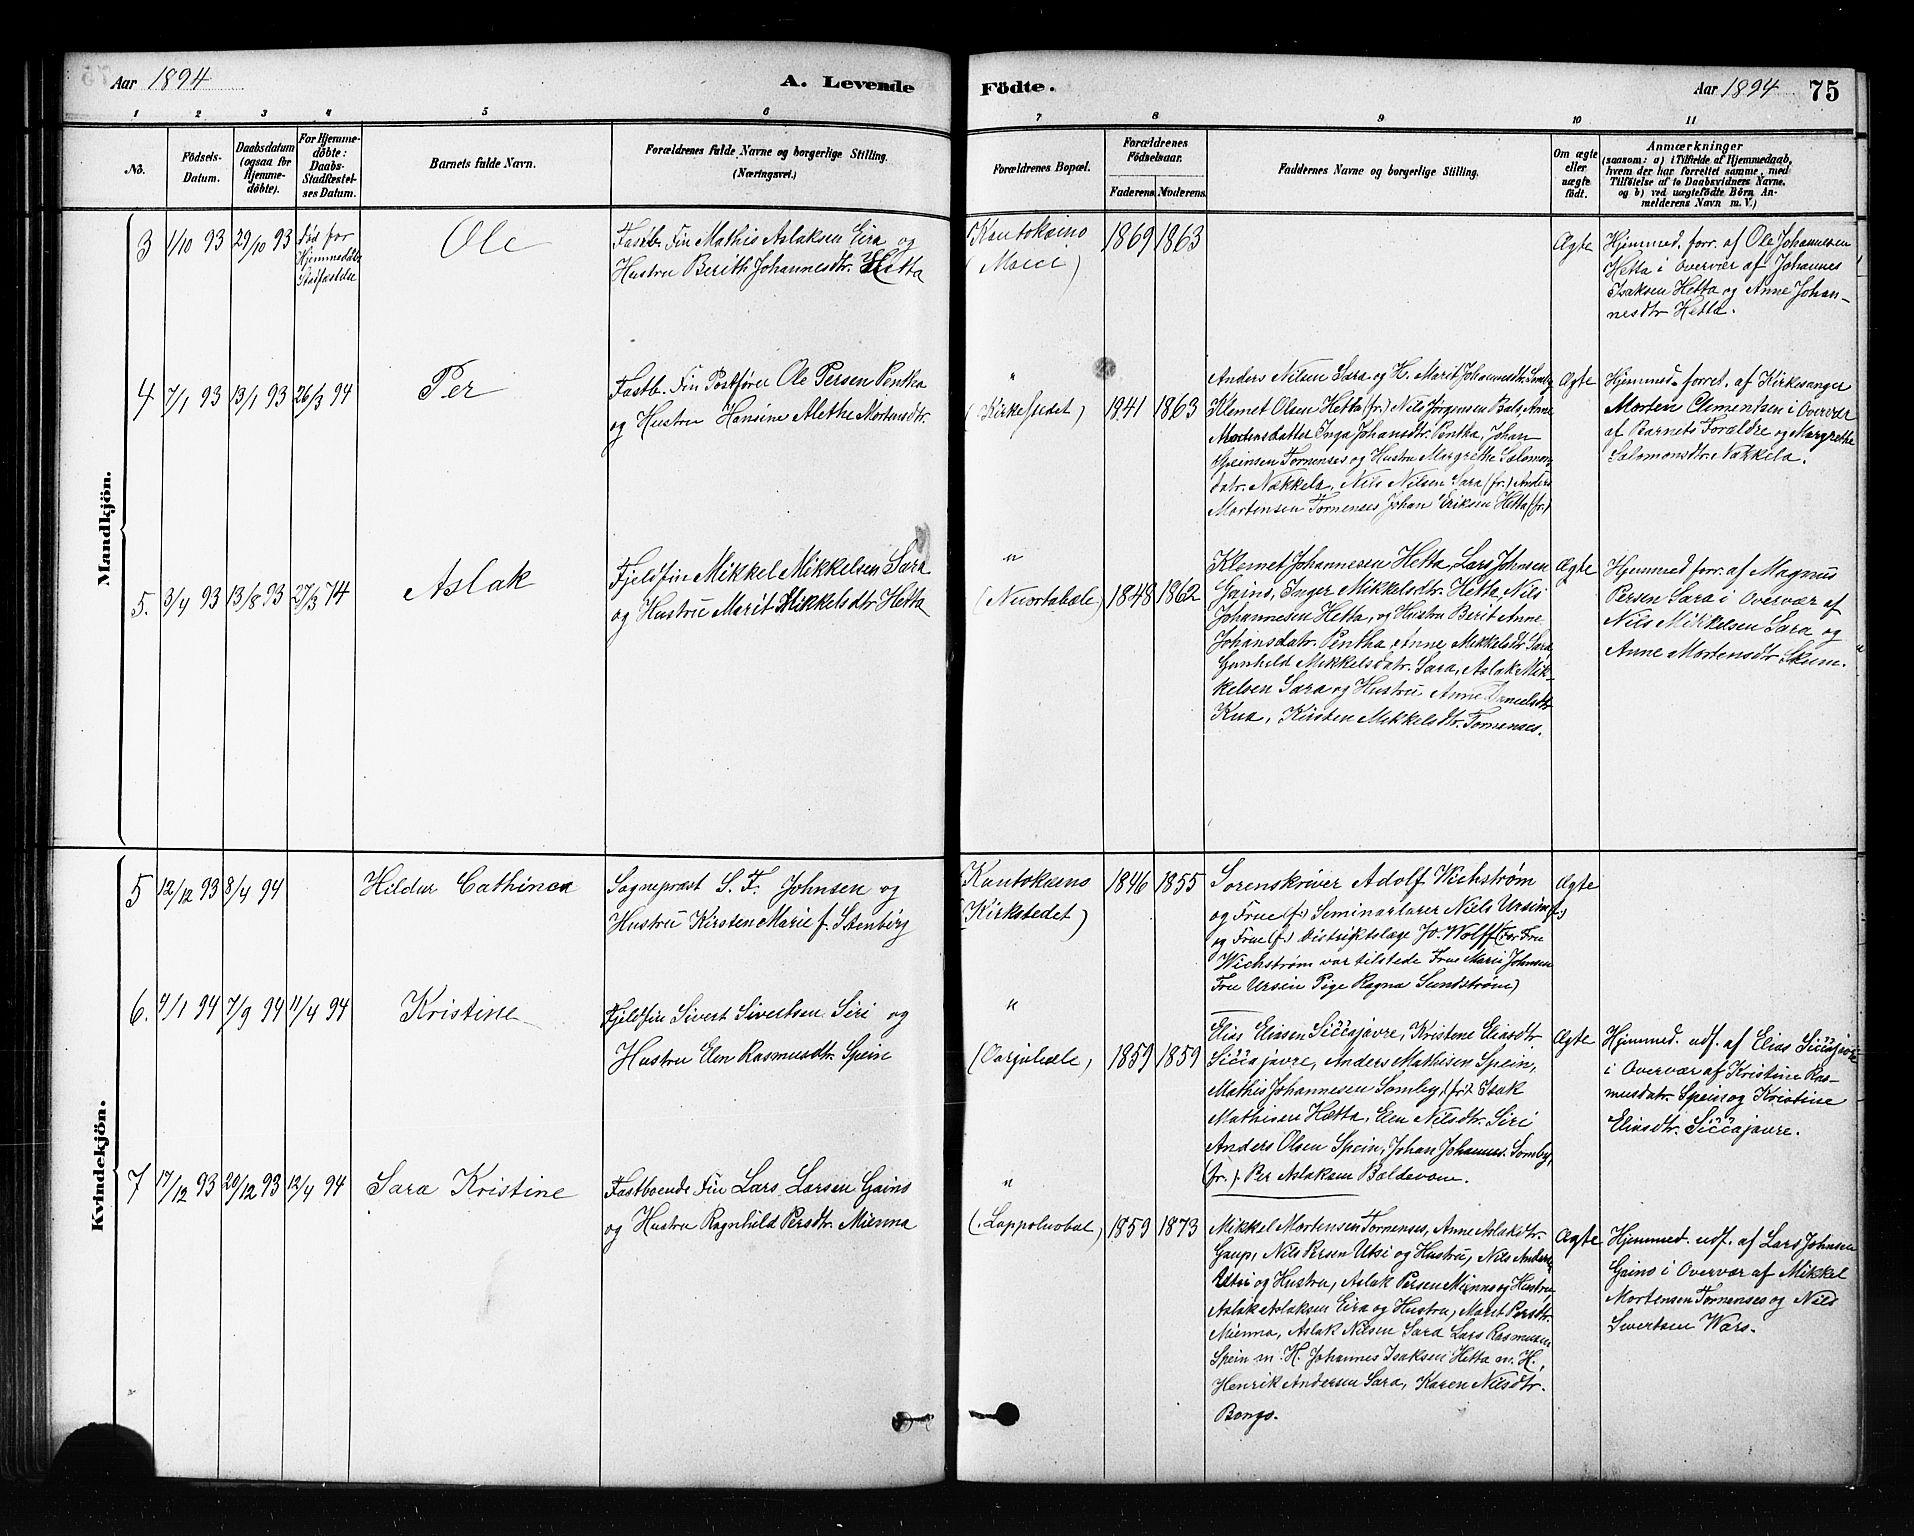 Aar 1894
A. Levende
Födte.
Aar 1894
75
1 2 3 4 5 6 7 8 9 10 11
No.
Födsels-
Datum.
Daabsdatum
(ogsaa for
Hjemme-
döbte).
For Hjemme-
döbte:
Daabs-
Stadfæstel-
ses Datum.
Barnets fulde Navn.
Forældrenes fulde Navne og borgerlige Stilling.
(Næringsvei.)
Forældrenes Bopæl.
Forældrenes
Födselsaar.
Faderens Moderens
Faddernes Navne og borgerlige Stilling.
Om ægte
eller
uægte
födt.
Anmærkninger
(saasom: a) i Tilfælde af Hjemmedaab,
hvem der har forrettet samme, med
Tilföielse af to Daabsvidners Navne.
og b) ved uægtefödte Börn An-
melderens Navn m. V.)
Mandkjön.
3 1/10 93 29/10 93
Død før
Hjemmedåbs
Stadfæstelse
Ole
Fastb. Fin Mathis Aslaksen Eira og
Hustru Berith Johannesdtr. Hetta
Kautokeino
(Masi)
1869 1863
Ægte
Hjemmed. forr. af Ole Johannesen
Hetta i Overvær af Johannes
Isaksen Hetta og Anne Johan-
nesdtr Hetta.
4 7/1 93 13/1 93 26/3 94
Per
Fastb. Fin Postfører Ole Persen Pentha
og Hustru Hansine Alethe Mortensdtr.
"
(Kirkestedet)
1841 1863
Anders Nilsen Sara og H. Marit Johannesdtr. Somby
Klemet Olsen Hetta (fr.) Nils Jørgensen Bals, Anne
Mortensdatter Inga Johansdtr. Pentha, Johan
Speinsen Tornenses og Hustru Margrethe Salomons
datr. Nækkela, Nils Nilsen Sara (fr.) Anders
Mortensen Tornenses Johan Eriksen Hetta (fr.)
Ægte
Hjemmed. forret. af Kirkesanger
Morten Clementsen i Overvær
af Barnets Forældre og Margrethe
Salomonsdtr. Nækkela.
5. 3/4 93 13/8 93 27/3 94
Aslak
Fjeldfin Mikkel Mikkelsen Sara
og Hustru Marit Mikkelsdtr Hetta
"
(Nuortabæle)
1848 1862
Klemet Johannesen Hetta, Lars Johnsen
Gaino, Inger Mikkelsdtr. Hetta Nils
Johannesen Hetta, og Hustru Berit Anne
Johansdatr. Pentha, Anne Mikkelsdtr Sara
Gunhild Mikkelsdatr. Sara, Aslak Mik-
kelsen Sara og Hustru Anne Danielsdtr
Kua, Kirsten Mikkelsdtr. Tornenses.
Ægte
Hjemmed forr. af Magnus
Persen Sara i Overvær af
Nils Mikkelsen Sara og
Anne Mortensdtr Skum.
Kvindekjön.
5 12/12 93 8/4 94
Hildur Cathinca
Sognepræst S. F. Johnsen og
Hustru Kirsten Marie f. Stenberg
Kautokeino
(Kirkstedet)
1846 1855
Sorenskriver Adolf Wichstrøm
og Frue (f.) Seminarlærer Niels Ursin (f.)
og Frue (f.) Distriktslæge W. Wolff (For Fru
Wichstrøm var tilstede Frue Marie Johnsen
Fru Ursin Pige Ragna Sundstrøm)
Ægte
6. 4/1 94 7/9 94 11/4 94
Kristine
Fjeldfin Sivert Sivertsen Siri og
Hustru Elen Rasmusdtr. Spein
"
(Oarjabæle)
1859 1859
Elias Eliasen Siččajavre, Kristene Eliasdtr.
Siččajavre, Anders Mathisen Spein,
Mathis Johannesen Somby, (fr.) Isak
Mathisen Hætta, Elen Nilsdtr. Siri
Anders Olsen Spein, Johan Johannes. Somby,
(fr.) Per Aslaksen Baldevom.
Ægte
Hjemmed. udf. af Elias Siččajavre
i Overvær af Kristine Ras-
musdatr. Spein og Kristine
Eliasdtr. Siččajavre.
7 17/12 93 29/12 93 12/4 94
Sara Kristine
Fastboende Fin Lars Larsen Gaino
og Hustru Ragnhild Persdtr. Mienna
"
(Lappoluobal)
1859 1873
Mikkel Mortensen Tornenses, Anne Aslakdtr.
Gaup, Nils Persen Utsi og Hustru, Nils Anders
Utsi og Hustru, Aslak Persen Mienna og Hustru,
Aslak Aslaksen Eira og Hustru, Maret Persdtr.
Mienna, Aslak Nilsen Sara Lars Rasmusen
Spein m. H. Johannes Isaksen Hetta m. H.,
Henrik Andersen Sara, Karen Nilsdtr.
Bongo.
Ægte
Hjemmed. udf. af Lars Johnsen
Gaino i Overvær af Mikkel
Mortensen Tornenses og Nils
Sivertsen Wars.